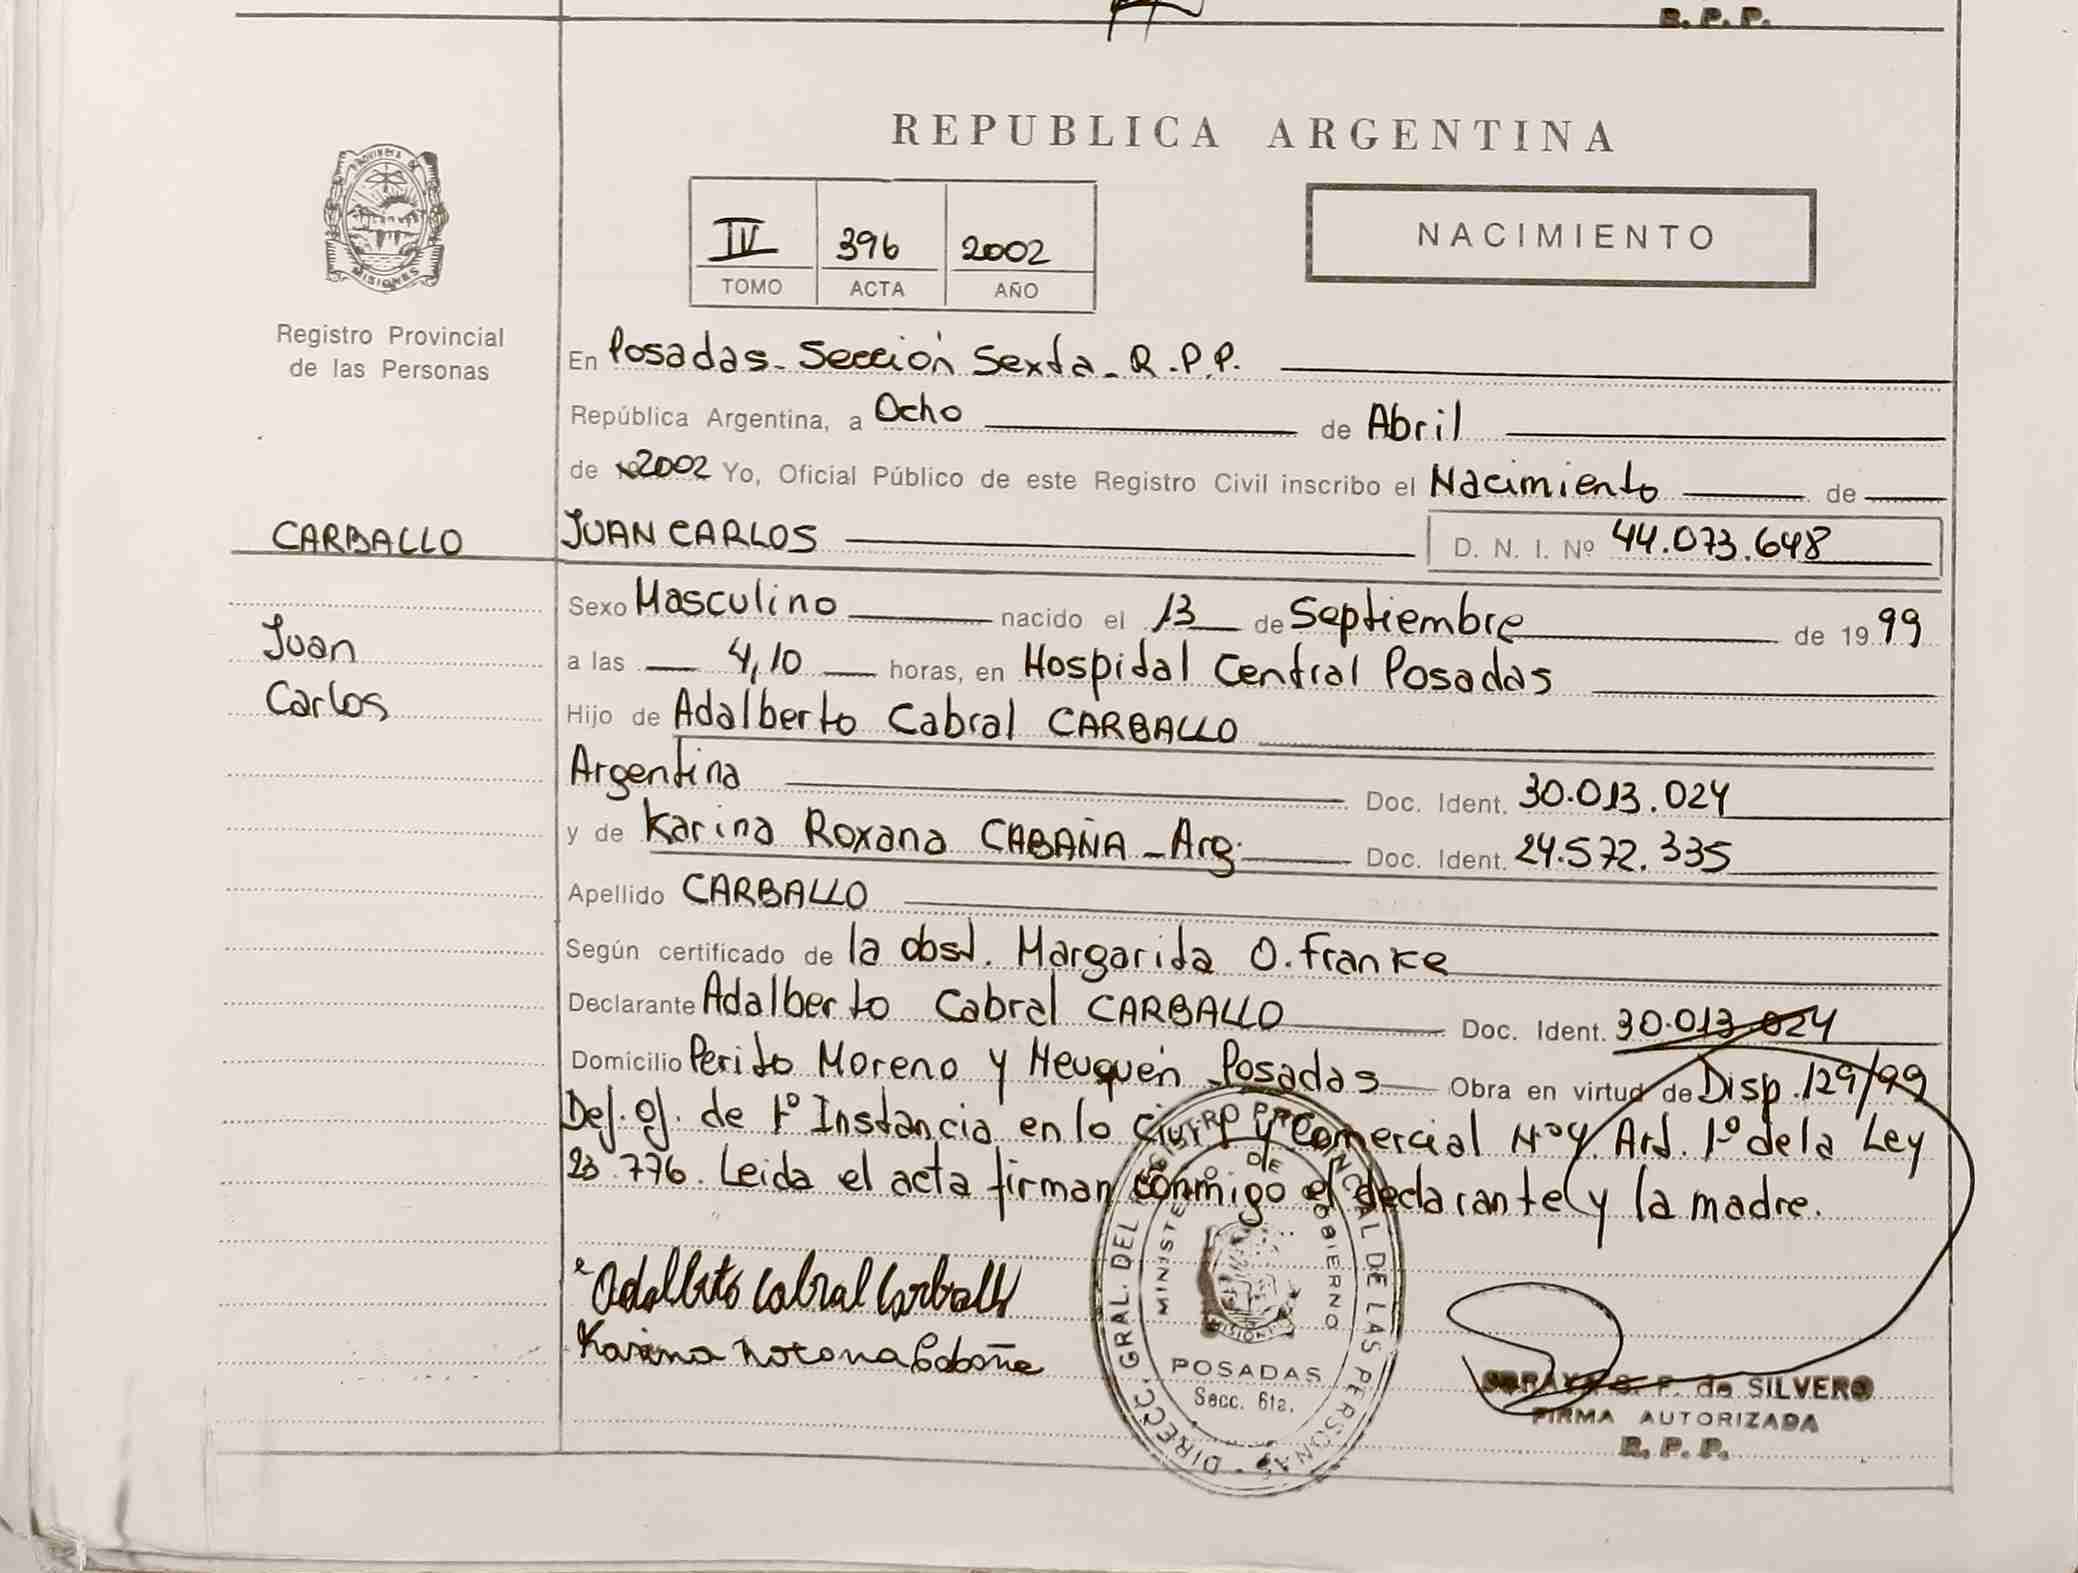 R. P. P.
REPUBLICA ARGENTINA
Provincia de
MISIONES
Registro Provincial
de las Personas
IV 396 2002
TOMO ACTA AÑO
NACIMIENTO
En Posadas - Sección Sexta - R.P.P.
República Argentina, a Ocho de Abril
de 2002 Yo, Oficial Público de este Registro Civil inscribo el Nacimiento de
CARBALLO JUAN CARLOS D. N. I. Nº 44.073.648
Sexo Masculino nacido el 13 de Septiembre de 19 99
Juan
a las 4,10 horas, en Hospital Central Posadas
Carlos
Hijo de Adalberto Cabral CARBALLO
Argentina Doc. Ident. 30.013.024
y de Karina Roxana CABAÑA - Arg. Doc. Ident. 24.572.335
Apellido CARBALLO
Según certificado de la obst. Margarida O. Franke
Declarante Adalberto Cabral CARBALLO Doc. Ident. 30.013.024
Domicilio Perito Moreno y Neuquén Posadas Obra en virtud de Disp. 129/99
Def. of. de 1º Instancia en lo Civil y Comercial Nº 4. Art. 1º de la Ley
23.776. Leida el acta firman conmigo el declarante y la madre.
Adalberto Cabral Carballo
Karina Roxana Cabaña
DIRECC. GRAL. DEL REGISTRO PROVINCIAL DE LAS PERSONAS
MINISTERIO DE GOBIERNO
MISIONES
POSADAS
Secc. 6ta.
de SILVERO
FIRMA AUTORIZADA
R. P. P.